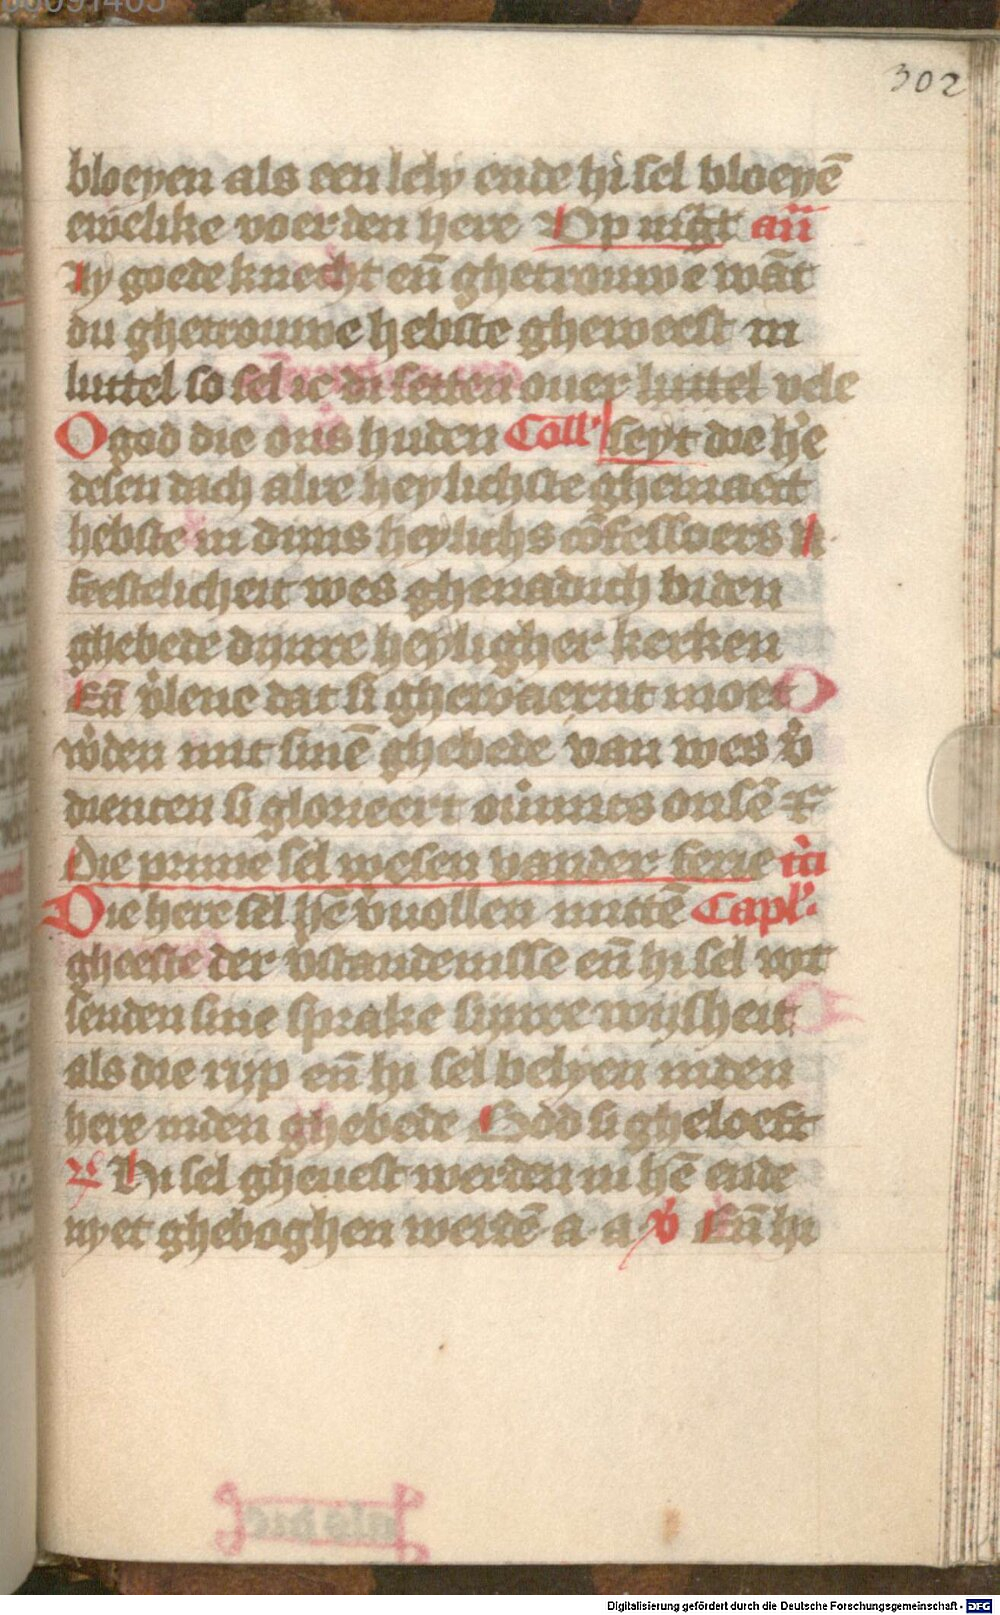 302
bloeyen als een lely ende hi sel bloeyē
ewelike voer den here Op mag̃t añ
Ay goede knecht eñ ghetrouwe wāt
du ghetrouwe hebste gheweest in
luttel so sel ic di setten ouer luttel vele
O god die ons huden Coll' seyt die h'e
desen dach alre heylichste ghemaect
hebste in dijns heylichs cōfessoers N
feestelicheit wes ghenadich biden
ghebede dijnre heyligher kerken
Eñ v'lene dat si ghewaernt moet
w'den mit sinē ghebede van wes v'
dienten si glorieert ou'mits onsē
Die prime sel wesen vander ferie
Die here sel hē v'uollen mittē Capl'
gheeste der v'standenisse eñ hi sel wt
senden sine sprake sijnre wijsheit
als die rijp eñ hi sel belyen inden
here inden ghebede God si gheloeft
℟ Hi sel gheuest werden in hē ende
nyet gheboghen werdē a a v' Eñ hi
Digitalisierung gefördert durch die Deutsche Forschungsgemeinschaft - DFG